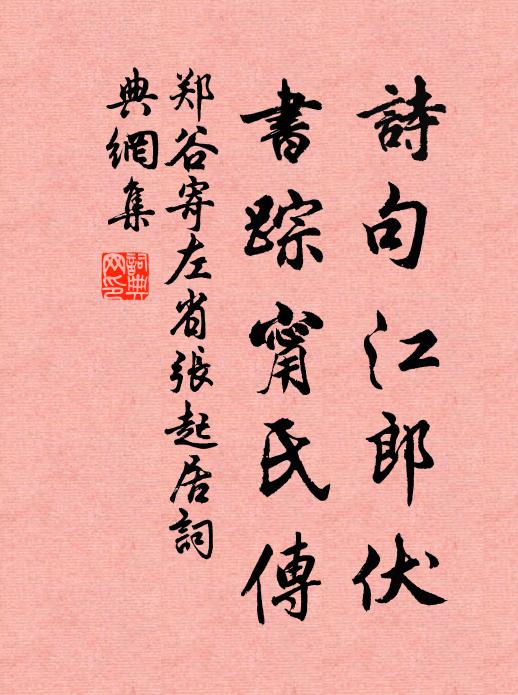 詩句江郎伏
書踪甯氏傳
郑谷寄左省張起居詞
典網集
詞典網印